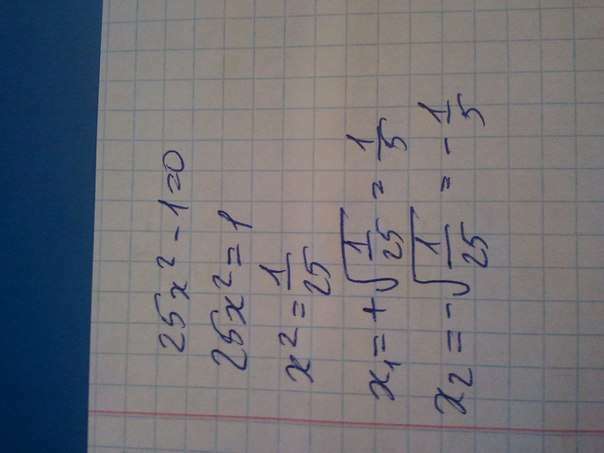 25x² - 1 = 0
25x² = 1
x² = 1/25
x₁ = +√(1/25) = 1/5
x₂ = -√(1/25) = -1/5